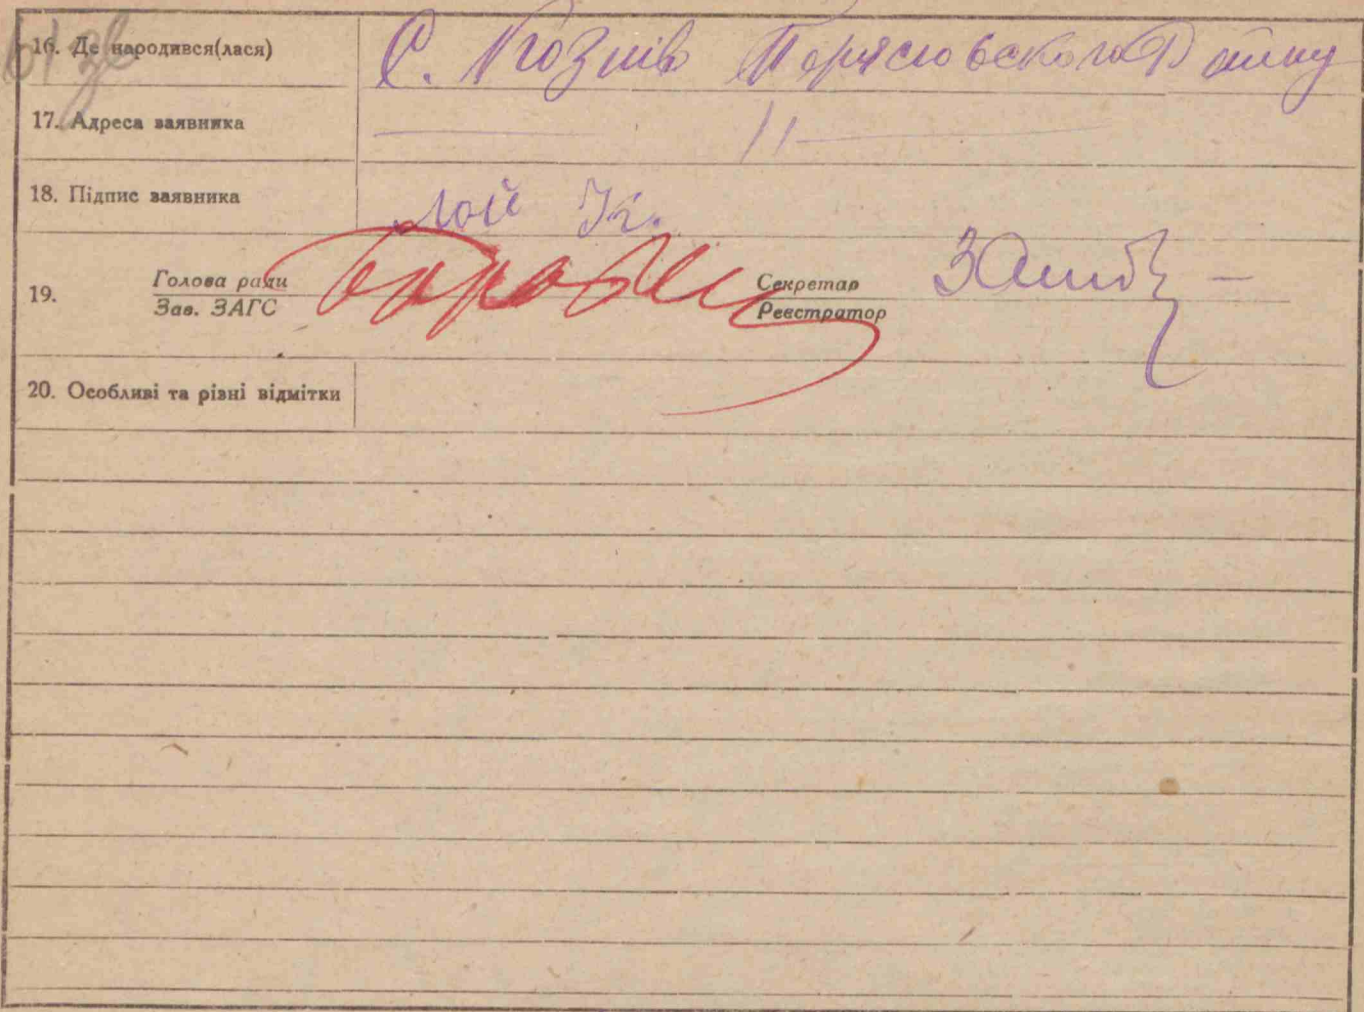 16. Де народився(лася) С. Козлів Переясловского Району
17. Адреса заявника — 11 —
18. Підпис заявника Лой К.
19. Голова ради Секретар
Зав. ЗАГС Реєстратор
20. Особливі та різні відмітки